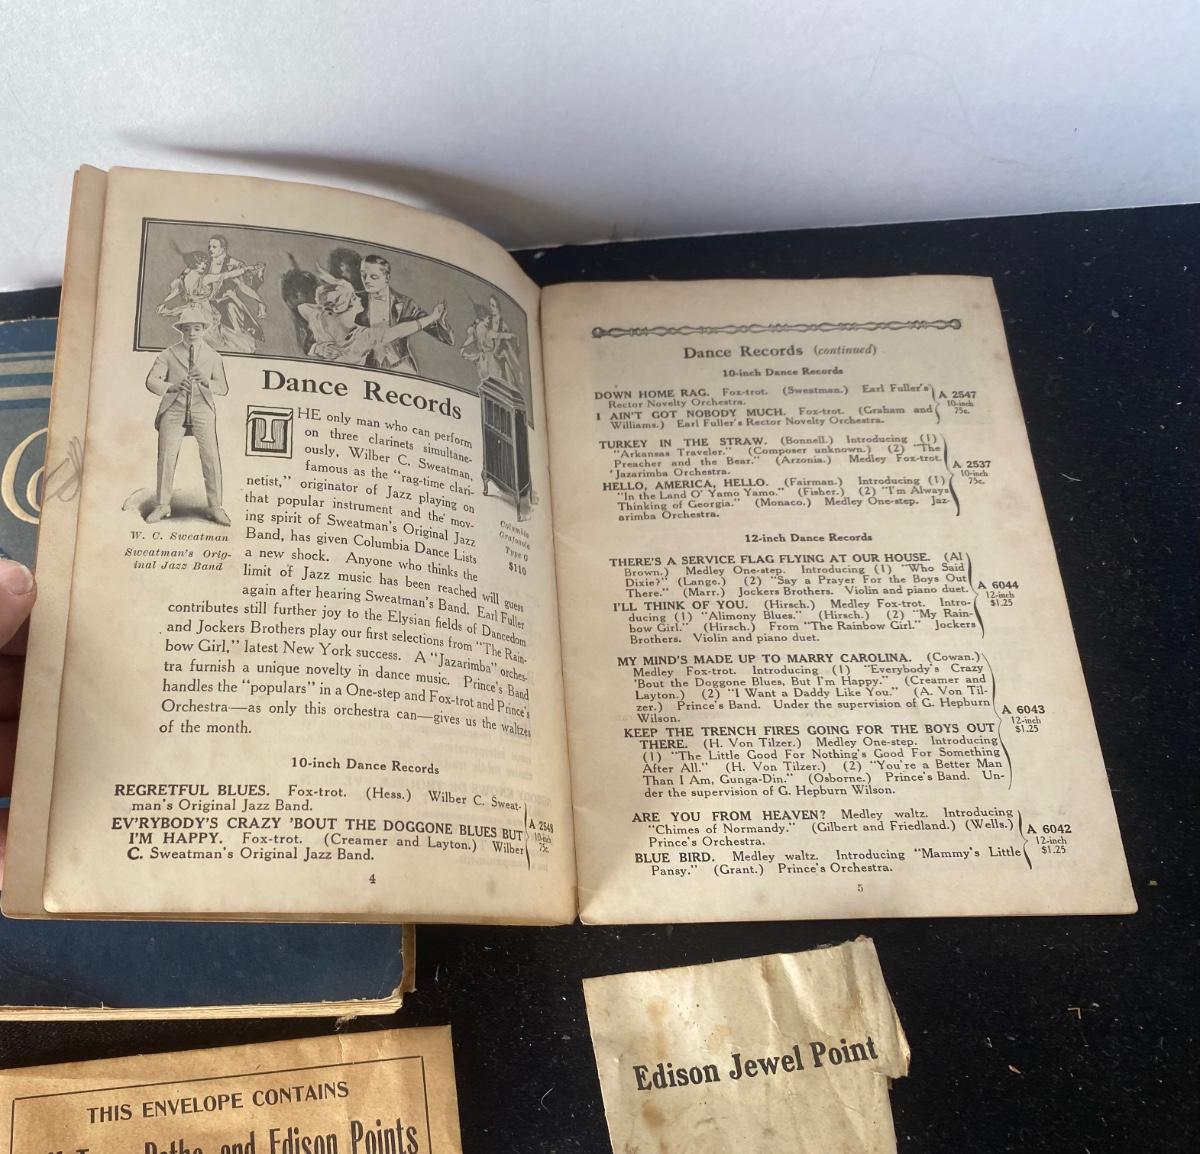 Dance Records
THE only man who can perform
on three clarinets simultane-
ously, Wilber C. Sweatman,
famous as the "rag-time clari-
netist," originator of Jazz playing on
that popular instrument and the mov-
ing spirit of Sweatman's Original Jazz
Band, has given Columbia Dance Lists
a new shock. Anyone who thinks the
limit of Jazz music has been reached will guess
again after hearing Sweatman's Band. Earl Fuller
contributes still further joy to the Elysian fields of Dancedom
and Jockers Brothers play our first selections from "The Rain-
bow Girl," latest New York success. A "Jazarimba" orches-
tra furnish a unique novelty in dance music. Prince's Band
handles the "populars" in a One-step and Fox-trot and Prince's
Orchestra—as only this orchestra can—gives us the waltzes
of the month.
W. C. Sweatman
Sweatman's Orig-
inal Jazz Band
Columbia
Grafonola
Type G
$110
10-inch Dance Records
REGRETFUL BLUES. Fox-trot. (Hess.) Wilber C. Sweat-
man's Original Jazz Band.
EV'RYBODY'S CRAZY 'BOUT THE DOGGONE BLUES BUT
I'M HAPPY. Fox-trot. (Creamer and Layton.) Wilber
C. Sweatman's Original Jazz Band.
A 2548
10-inch
75c.
4
Dance Records (continued)
10-inch Dance Records
DOWN HOME RAG. Fox-trot. (Sweatman.) Earl Fuller's
Rector Novelty Orchestra.
I AIN'T GOT NOBODY MUCH. Fox-trot. (Graham and
Williams.) Earl Fuller's Rector Novelty Orchestra.
A 2547
10-inch
75c.
TURKEY IN THE STRAW. (Bonnell.) Introducing (1)
"Arkansas Traveler." (Composer unknown.) (2) "The
Preacher and the Bear." (Arzonia.) Medley Fox-trot.
Jazarimba Orchestra.
HELLO, AMERICA, HELLO. (Fairman.) Introducing (1)
"In the Land O' Yamo Yamo." (Fisher.) (2) "I'm Always
Thinking of Georgia." (Monaco.) Medley One-step. Jaz-
arimba Orchestra.
A 2537
10-inch
75c.
12-inch Dance Records
THERE'S A SERVICE FLAG FLYING AT OUR HOUSE. (Al
Brown.) Medley One-step. Introducing (1) "Who Said
Dixie?" (Lange.) (2) "Say a Prayer For the Boys Out
There." (Marr.) Jockers Brothers. Violin and piano duet.
I'LL THINK OF YOU. (Hirsch.) Medley Fox-trot. Intro-
ducing (1) "Alimony Blues." (Hirsch.) (2) "My Rain-
bow Girl." (Hirsch.) From "The Rainbow Girl." Jockers
Brothers. Violin and piano duet.
A 6044
12-inch
$1.25
MY MIND'S MADE UP TO MARRY CAROLINA. (Cowan.)
Medley Fox-trot. Introducing (1) "Everybody's Crazy
'Bout the Doggone Blues, But I'm Happy." (Creamer and
Layton.) (2) "I Want a Daddy Like You." (A. Von Til-
zer.) Prince's Band. Under the supervision of G. Hepburn
Wilson.
KEEP THE TRENCH FIRES GOING FOR THE BOYS OUT
THERE. (H. Von Tilzer.) Medley One-step. Introducing
(1) "The Little Good For Nothing's Good For Something
After All." (H. Von Tilzer.) (2) "You're a Better Man
Than I Am, Gunga-Din." (Osborne.) Prince's Band. Un-
der the supervision of G. Hepburn Wilson.
A 6043
12-inch
$1.25
ARE YOU FROM HEAVEN? Medley waltz. Introducing
"Chimes of Normandy." (Gilbert and Friedland.) (Wells.)
Prince's Orchestra.
BLUE BIRD. Medley waltz. Introducing "Mammy's Little
Pansy." (Grant.) Prince's Orchestra.
A 6042
12-inch
$1.25
5
Edison Jewel Point
THIS ENVELOPE CONTAINS
and Edison Points